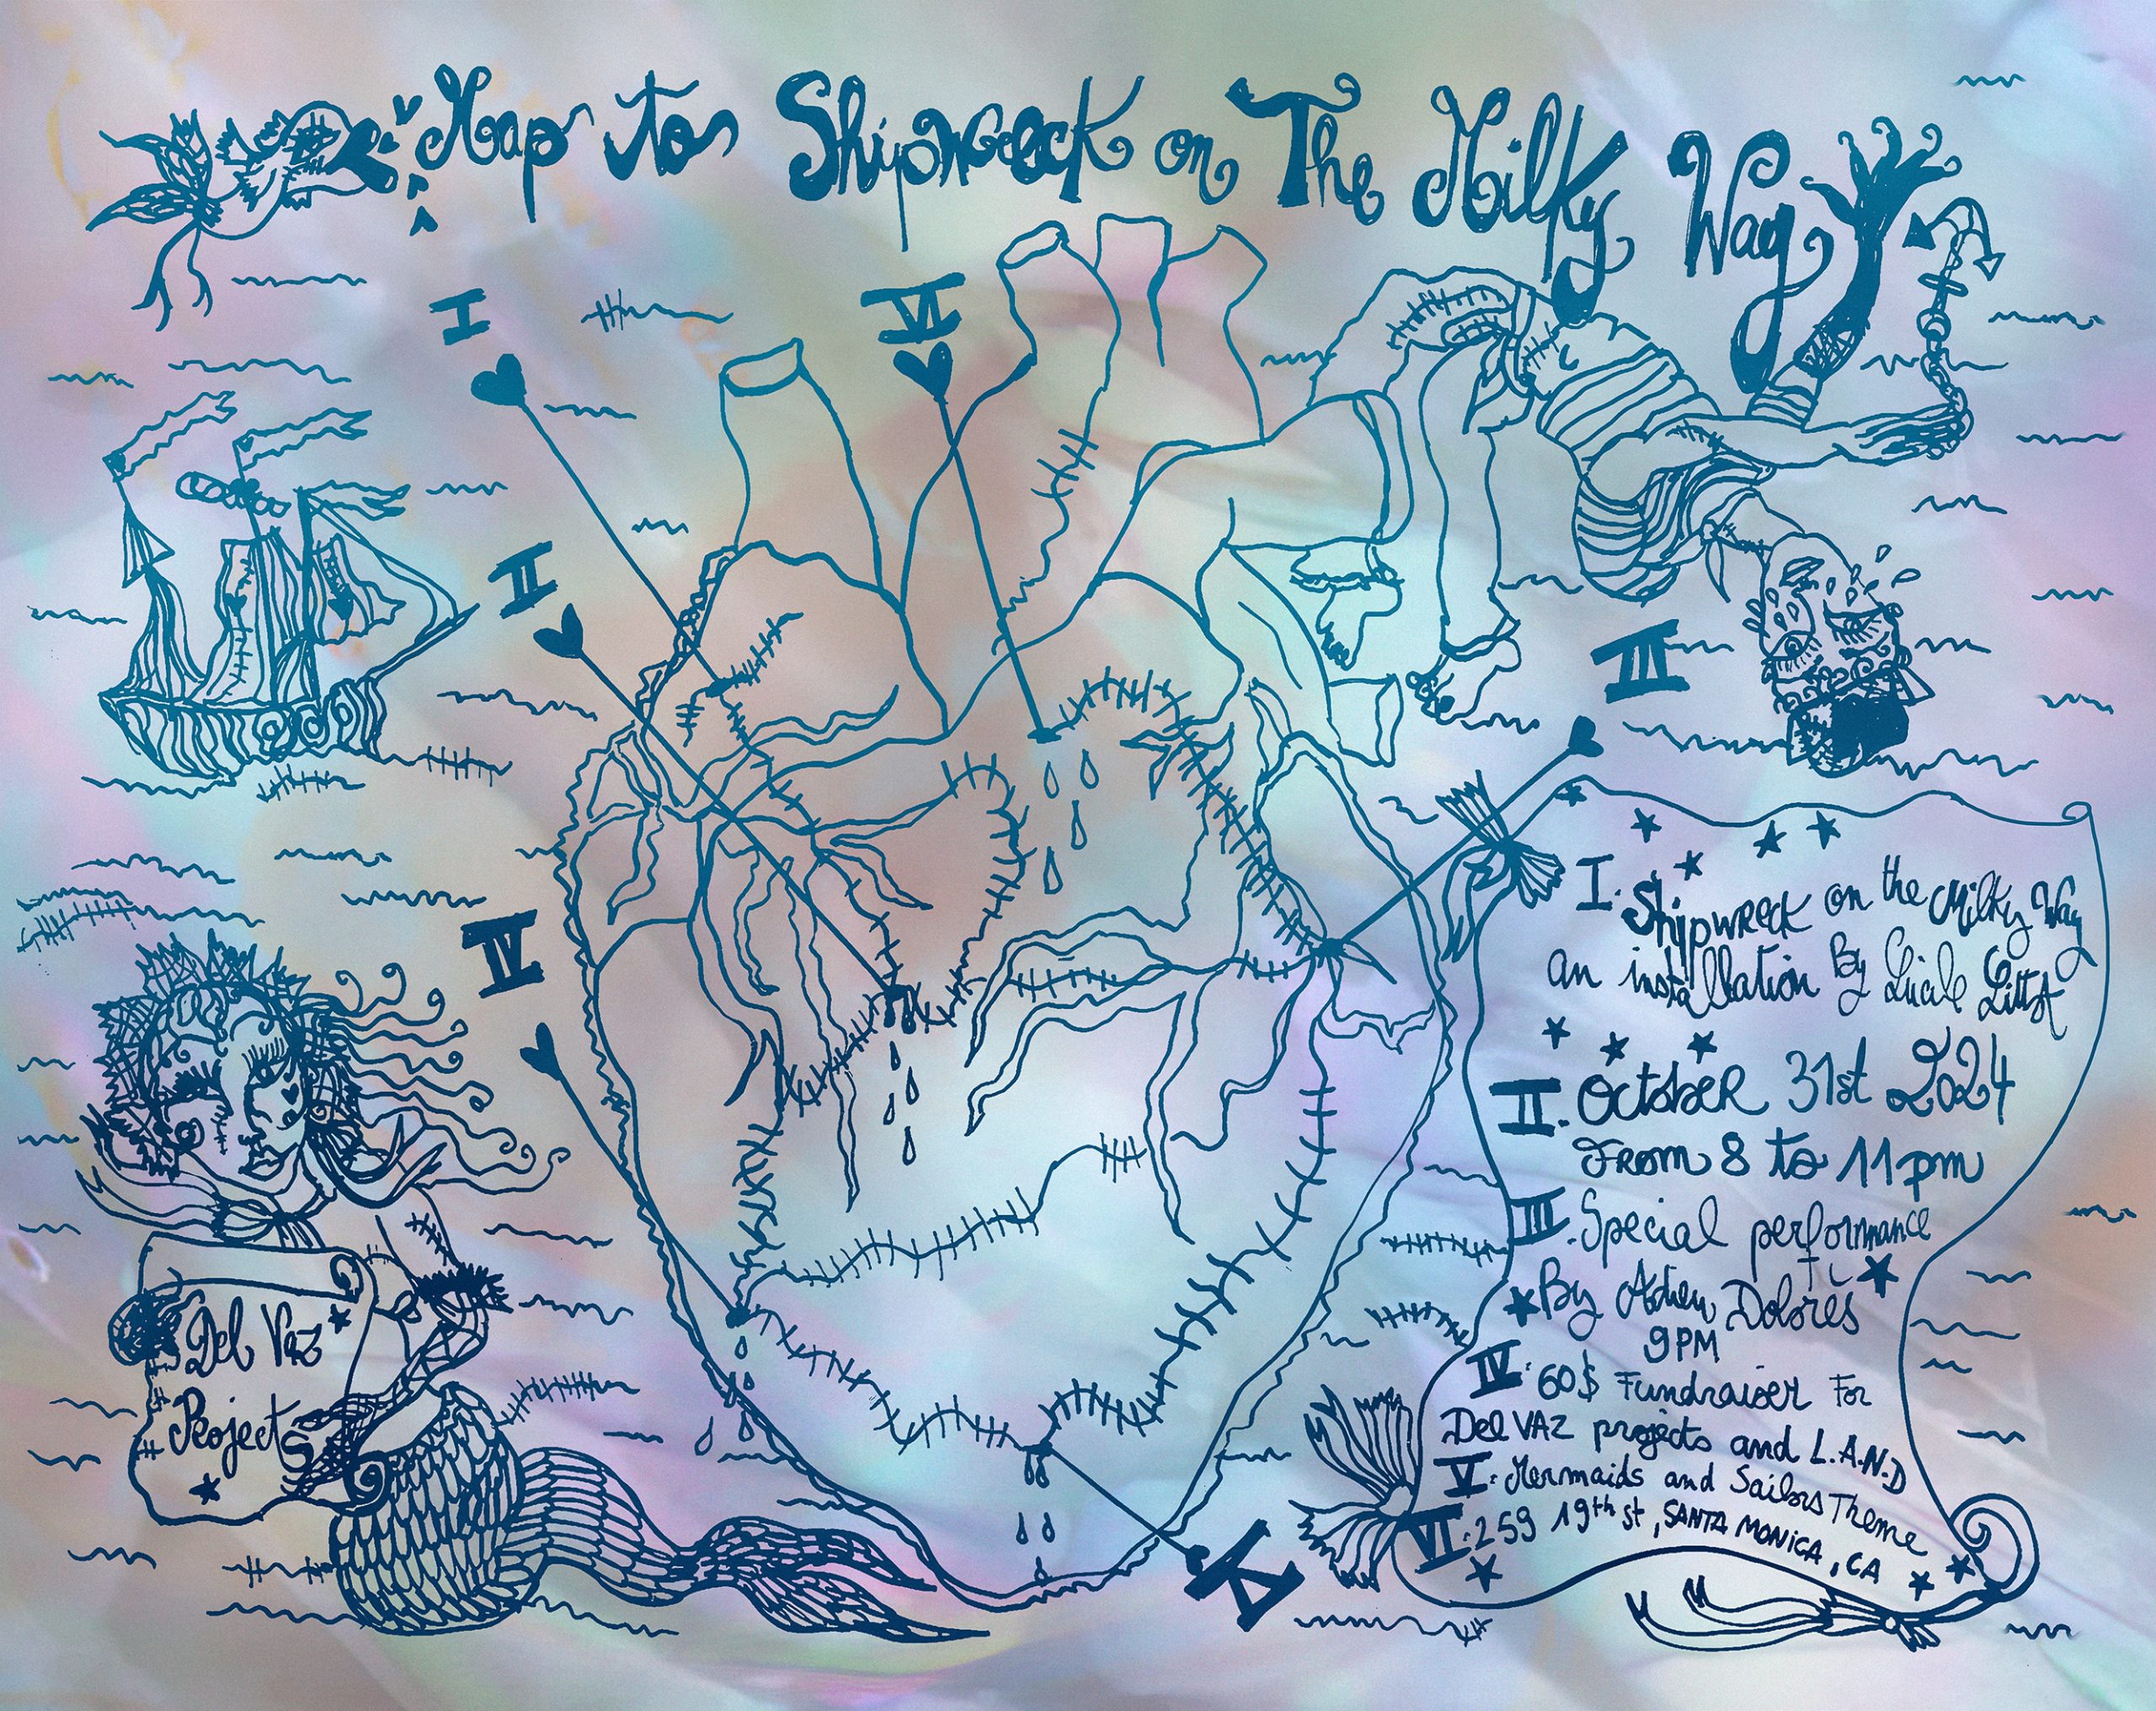 Map to Shipwreck on The Milky Way
I
VI
II
III
IV
V
Del Vaz
Projects
I. Shipwreck on the Milky Way
an installation By Lucile Littot
II. October 31st 2024
From 8 to 11pm
III. Special performance
By Dolores
9PM
IV: 60$ Fundraiser For
Del VAZ projects and L.A.N.D
V: Mermaids and Sailors Theme
VI: 259 19th st, SANTA MONICA, CA